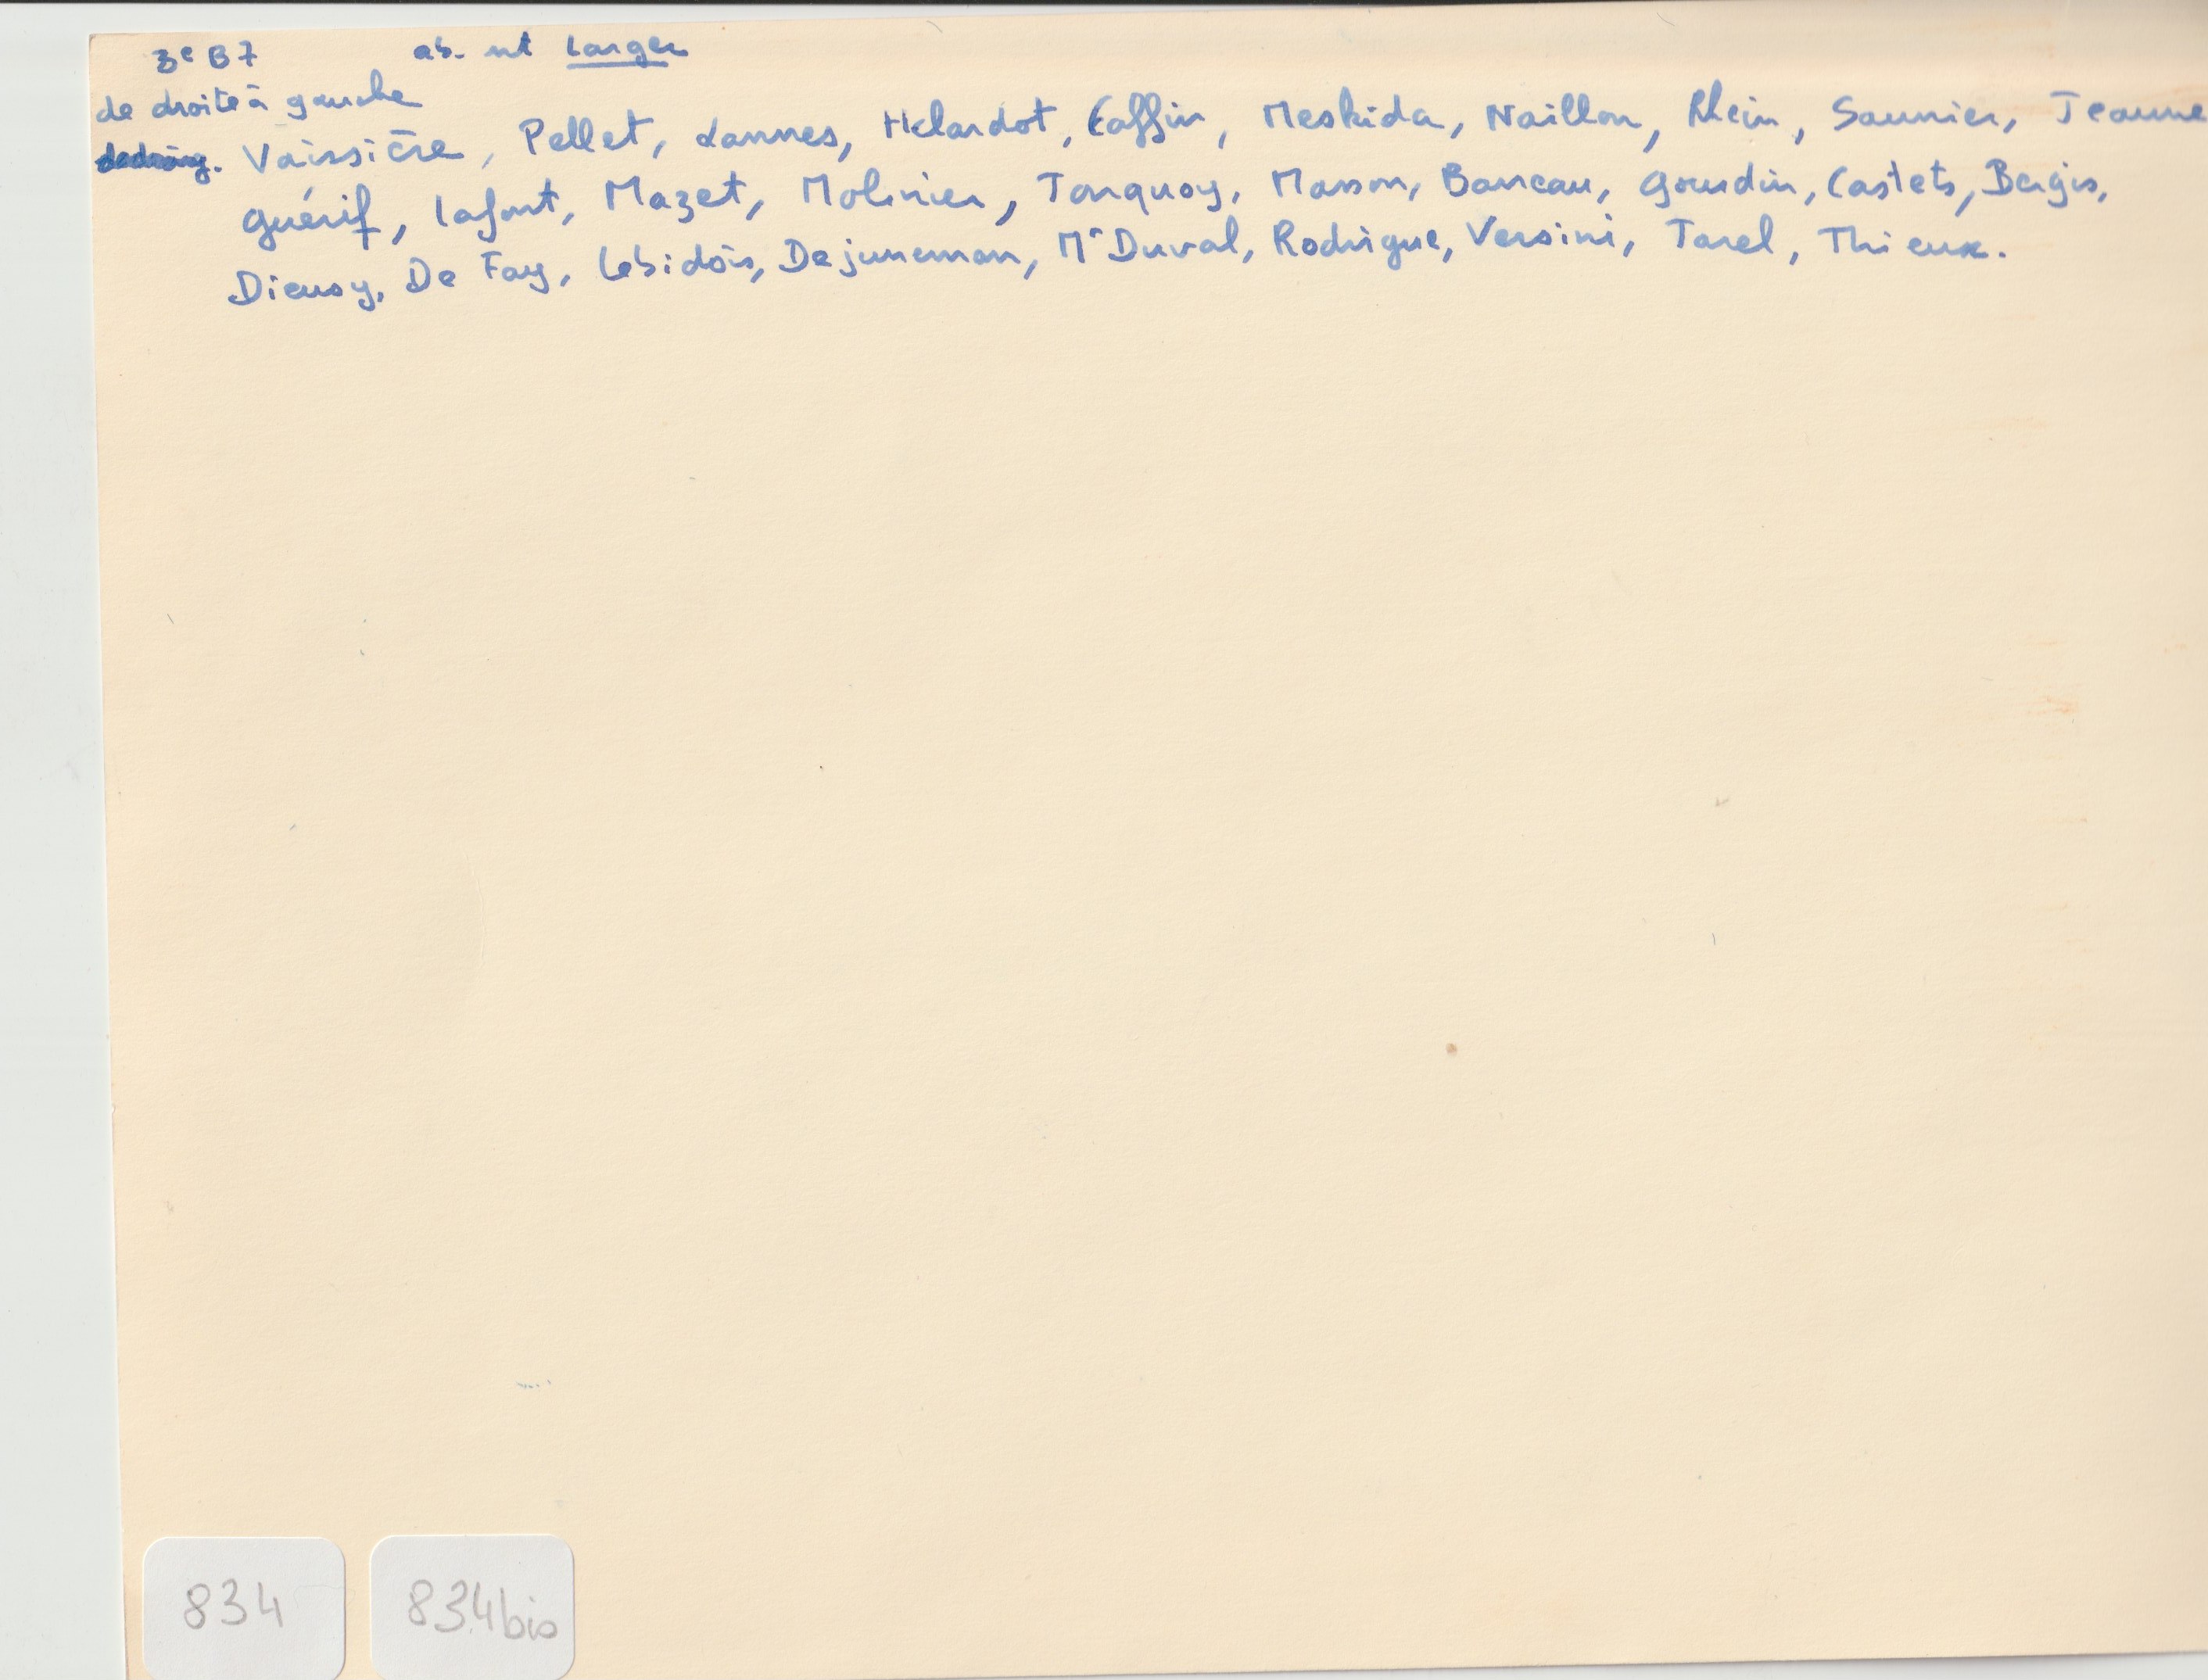 3e B7 ab. nt Larger
de droite à gauche
Vaissière, Pellet, Lannes, Helardot, Caffin, Meskida, Naillon, Rhein, Saunier, Jeanne
Guérif, Lafont, Mazet, Molinier, Torquoy, Masson, Barreau, Gourdin, Castets, Bergis,
Dieusy, De Fay, Lebidois, Dejuneman, Mr Duval, Rodrigue, Versini, Tarel, Thieux.
834 834bis